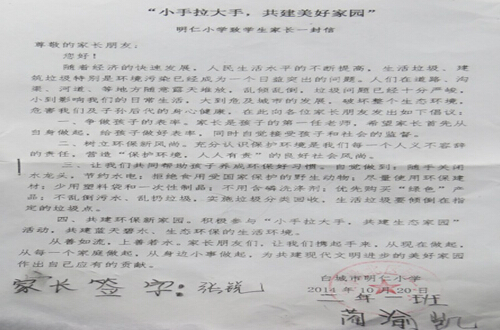 “小手拉大手，共建美好家园”
明仁小学致学生家长一封信
尊敬的家长朋友：
您好！
随着经济的快速发展，人民生活水平的不断提高，生活垃圾、建
筑垃圾特别是环境污染已经成为一个日益突出的问题。人们在道路、
沟渠、河道、等地方随意露天堆放，乱倾乱倒，垃圾问题已经十分严峻，
小到影响我们的日常生活，大到危及城市的发展，破坏整个生态环境，
危害我们及子孙后代的身心健康。在此向各位家长朋友发出如下倡议：
一、争做孩子的表率。家长是孩子的第一任老师，希望家长首先从
自身做起，给孩子做好表率，同时自觉接受孩子和社会的监督。
二、树立环保新风尚。充分认识保护环境是我们每一个人义不容辞
的责任，营造“保护环境，人人有责”的良好社会风尚。
三、让我们共同帮助孩子养成环保好习惯。自觉做到：随手关闭
水龙头，节约水电；拒绝食用受国家保护的野生动物；尽量使用环保建
材；少用塑料袋和一次性制品；不用含磷洗涤剂；优先购买“绿色”产
品；不乱倒污水、乱扔垃圾，实施垃圾分类回收，生活垃圾要倾倒在指
定的垃圾点。
四、共建环保新家园。积极参与“小手拉大手，共建生态家园”
活动，共建蓝天碧水、生态环保的生活环境。
从善如流，上善若水。家长朋友们，让我们携起手来，从现在做起，
从每一个家庭做起，从身边小事做起，为共建现代文明进步的美好家园
作出自己应有的贡献。
白城市明仁小学
2014年10月20日
家长签字：张锐
二年一班